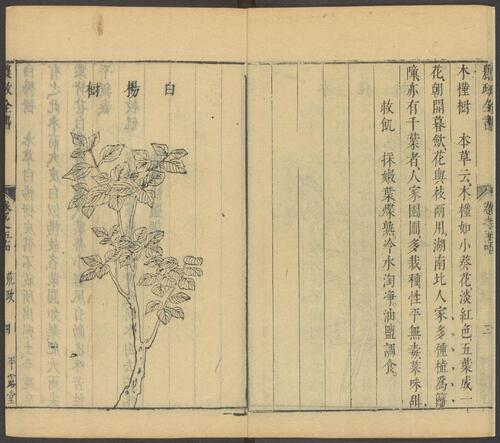 木槿樹　本草云木槿如小葵花淡紅色五葉成一
花朝開暮斂花與枝兩用湖南北人家多種植爲籬
障亦有千葉者人家園圃多栽種性平無毒葉味甜
救飢　採嫩葉煠熟冷水淘淨油鹽調食
三
白楊樹
荒政
四
平露堂